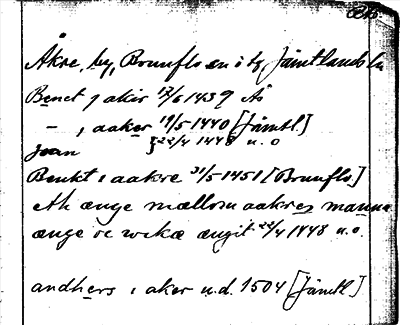 Åkre, by, Brunflo sn i tg, Jämtlands län
Benct j akir 12/6 1439 Ås
– , aaker 19/5 1440 [Jämtl.]
Joan } 22/4 1448 u.o
Benkt i aakre 31/5 1451 [Brunflo]
eth ænge mællom aakres manna
ænge oc wikæ ængit 22/4 1448 u.o.
andhers i aker u.d. 1504 [Jämtl]